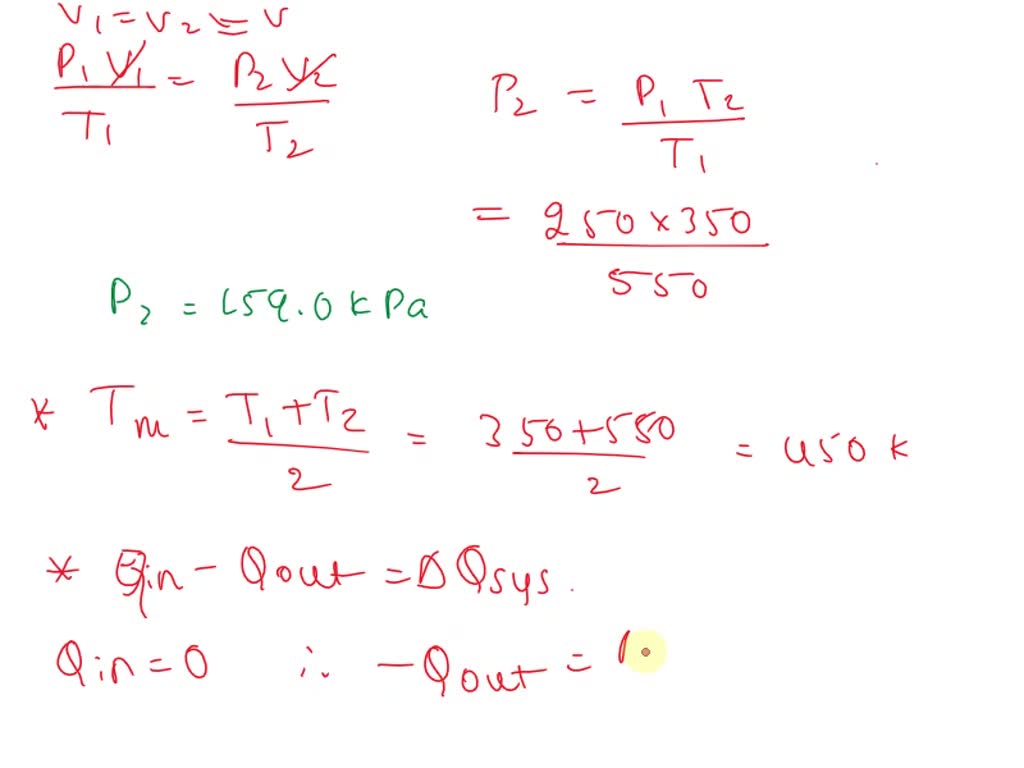 V₁ = V₂ = V
P₁ V₁ / T₁ = P₂ V₂ / T₂
P₂ = P₁ T₂ / T₁
= 250 × 350 / 550
P₂ = 159.0 kPa
* Tm = T₁ + T₂ / 2 = 350 + 550 / 2 = 450 K
* Qin − Qout = ΔQsys.
Qin = 0 ∴ − Qout =